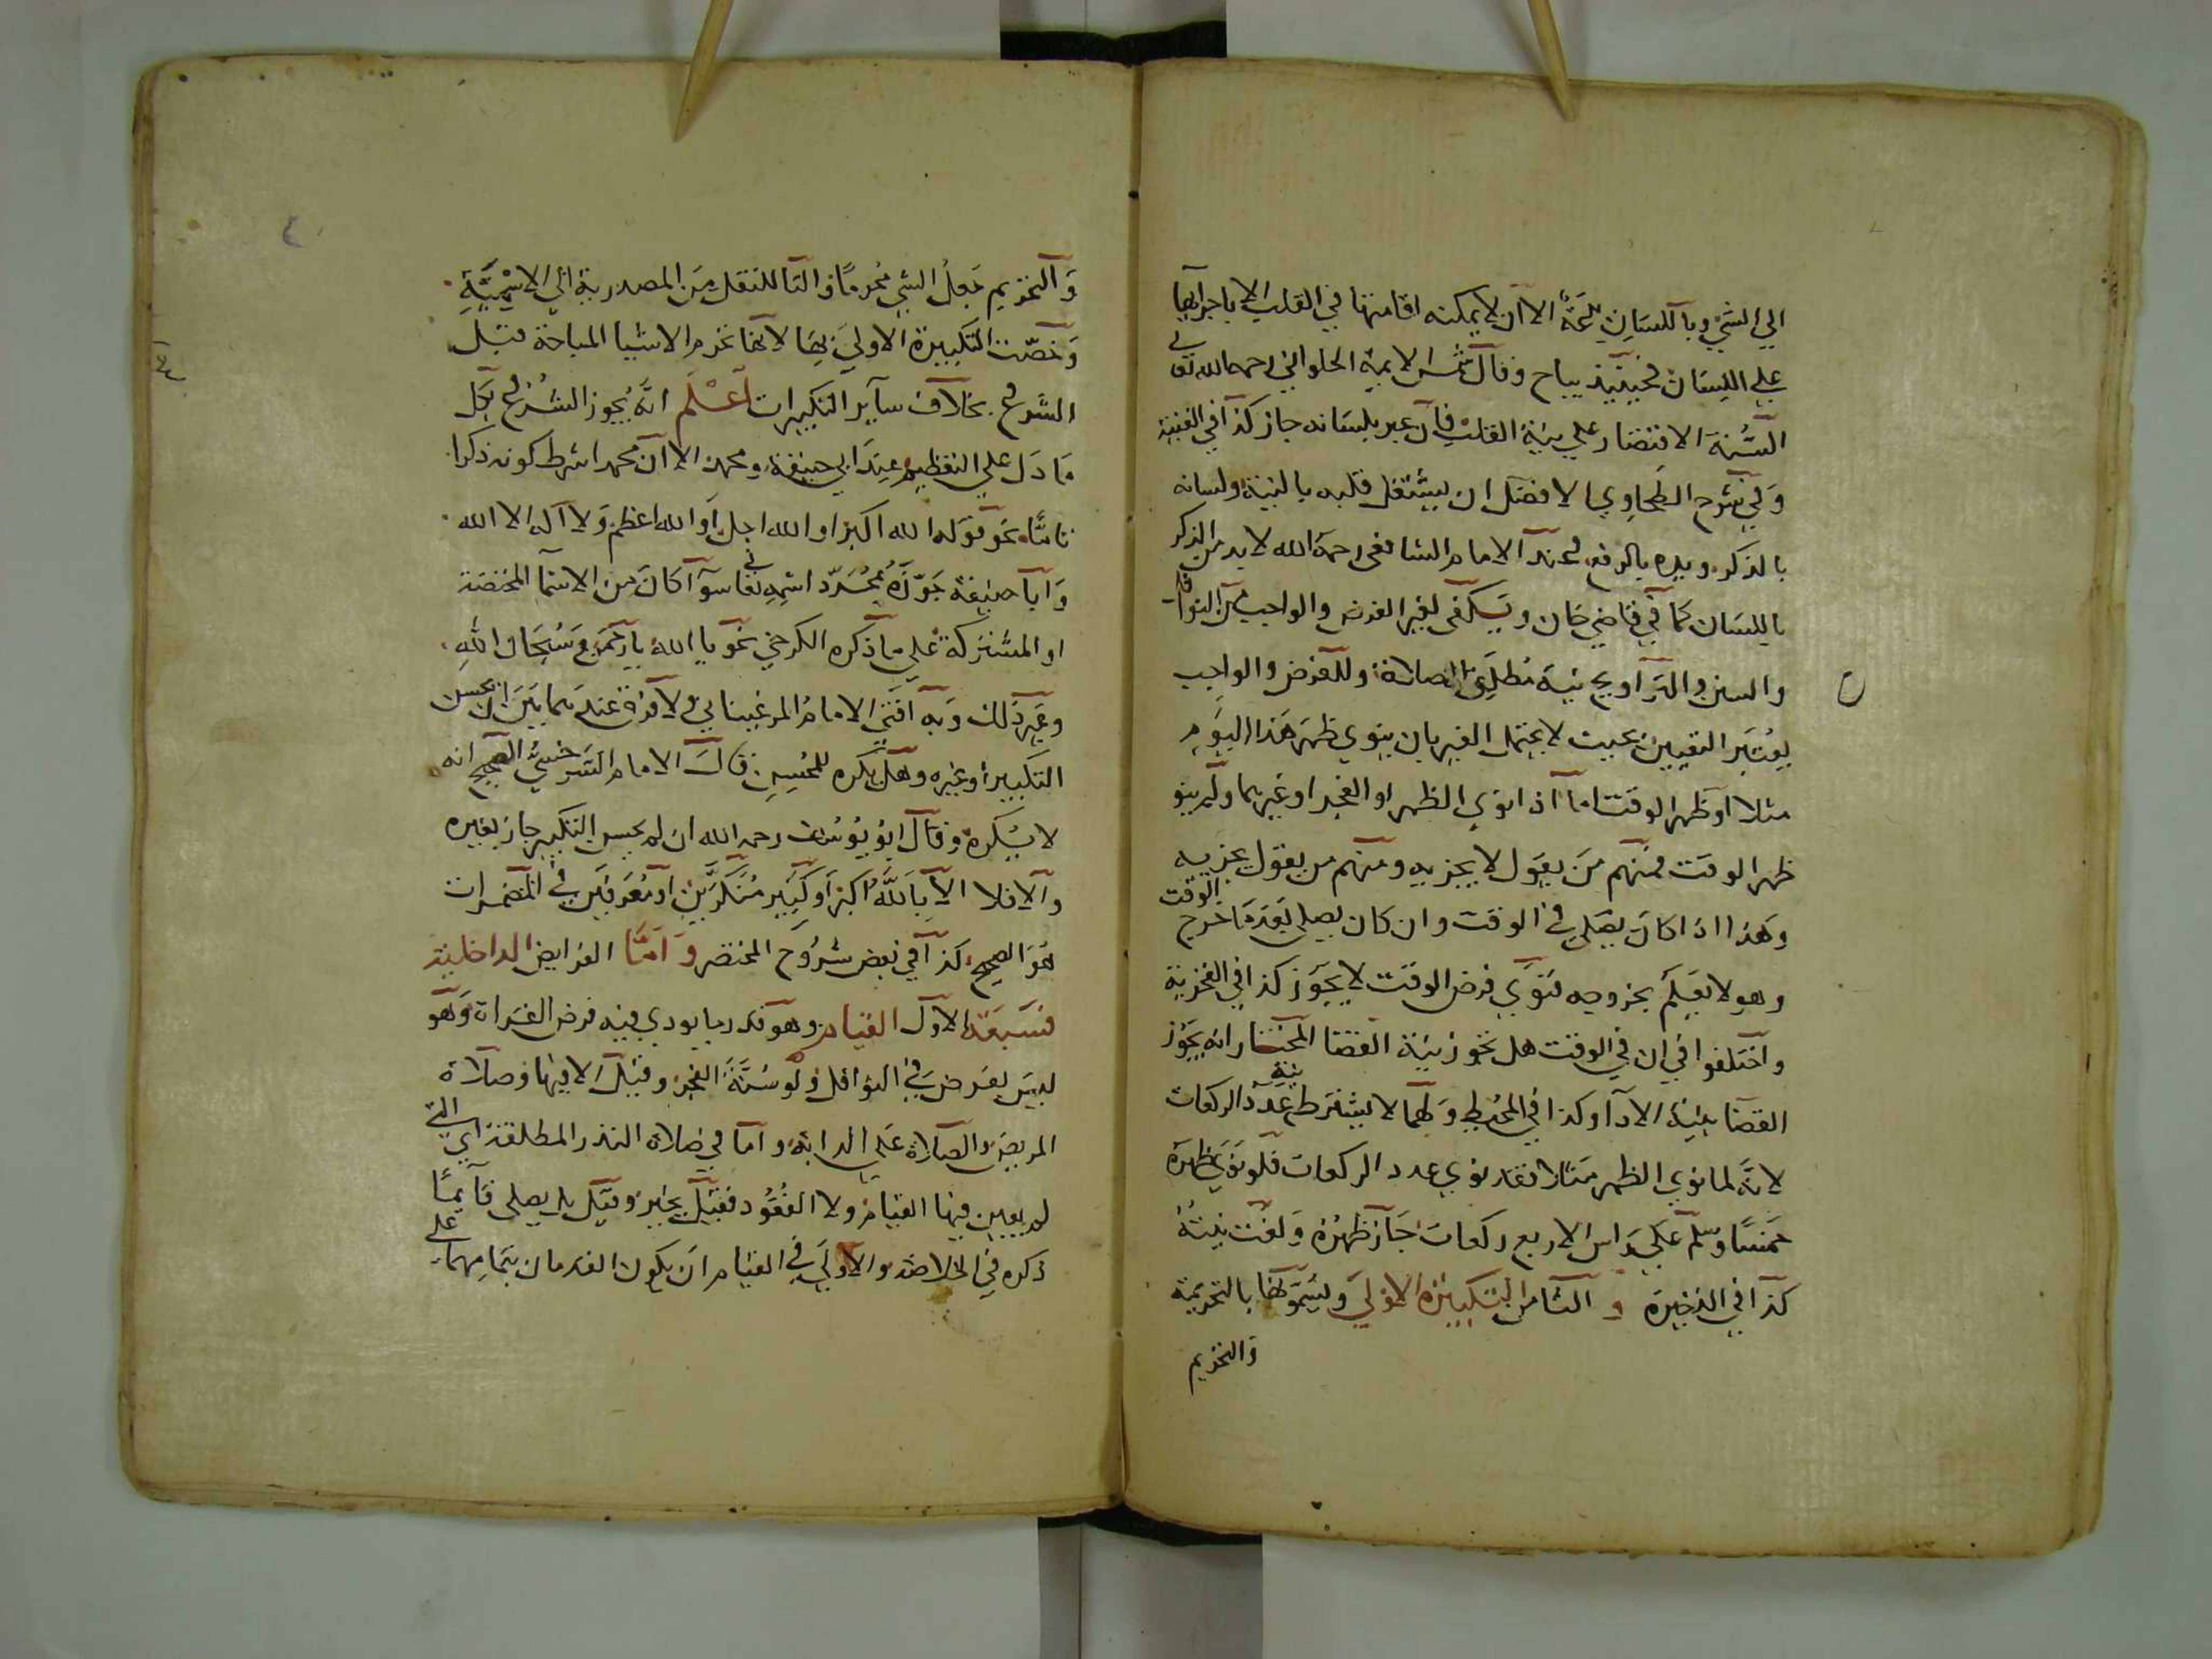 الي الشي وباللسان بدعة الا ان لا يمكنه اقامتها في القلب الا باجرايها
علي اللسان فحينيذ يباح وقال شمس الايمة الحلواني رحمه الله تعالى
السنة الاقتصار علي نية القلب فان عبر بلسانه جاز كذا في القنية
وفي شرح الطحاوي الافضل ان يشتغل قلبه بالنية ولسانه
بالذكر ويده بالرفع وعند الامام الشافعي رحمه الله لا بد من الذكر
باللسان كما في قاضي خان ويكفي لغير الفرض والواجب من النوافل
والسنن والتراويح نية مطلق الصلاة وللفرض والواجب
يعتبر التعيين بحيث لا يحتمل الغير بان ينوي ظهر هذا اليوم
مثلا او ظهر الوقت اما اذا نوي الظهر او الفجر او غيرهما ولم ينو
ظهر الوقت فمنهم من يقول لا يجزيه ومنهم من يقول يجزيه
وهذا اذا كان يصلي في الوقت وان كان يصلي بعد ما خرج الوقت
وهو لا يعلم بخروجه فنوي فرض الوقت لا يجوز كذا في الفخرية
واختلفوا في ان في الوقت هل تجوز بنية القضا المختار انه يجوز
القضا بنية الادا وكذا في المحيط ولهما لا يشترط نية عدد الركعات
لانه لما نوي الظهر مثلا فقد نوي عدد الركعات فلو نوي ظهره
خمسا وسلم علي راس الاربع ركعات جاز ظهره ولغت نيته
كذا في الذخيرة و الثامن التكبيرة الاولي ويسمونها بالتحريمة
والتحريم
والتحريم جعل الشي محرما والتا للنقل من المصدرية الي الاسمية
وخصت التكبيرة الاولي بها لانها تحرم الاشيا المباحة قبل
الشروع بخلاف ساير التكبيرات اعلم انه يجوز الشروع بكل
ما دل علي التعظيم عند ابي حنيفة ومحمد الا ان محمد اشرط كونه ذكرا
تاما نحو قوله الله اكبر او الله اجل او الله اعظم ولا اله الا الله
وابا حنيفة جوزه بمجرد اسمه تعالى سوا كان من الاسما المختصة
او المشتركة علي ما ذكره الكرخي نحو يا الله يا رحمن وسبحان الله
وغير ذلك وبه افتي الامام المرغيناني ولا فرق عندهما بين ان يحسن
التكبير او غيره وهل يكره للمحسن قال الامام السرخسي الصحيح انه
لا يكره وقال ابو يوسف رحمه الله ان لم يحسن التكبير جاز بغيره
والا فلا الا بالله اكبر او كبير منكرين او معرفين في المضمرات
هو الصحيح كذا في بعض شروح المختصر و اما الفرايض الداخلية
فسبعة الاول القيام وهو قدر ما يودي فيه فرض القراة وهو
ليس بفرض في النوافل ولو سنة الفجر وقيل الا فيها وصلاة
المريض والصلاة علي الدابة واما في صلاة النذر المطلقة اي التي
لم يعين فيها القيام ولا القعود فقيل يخير وقيل بل يصلي قايما
ذكره في الخلاصة والاولي في القيام ان يكون القدمان بتمامهما علي